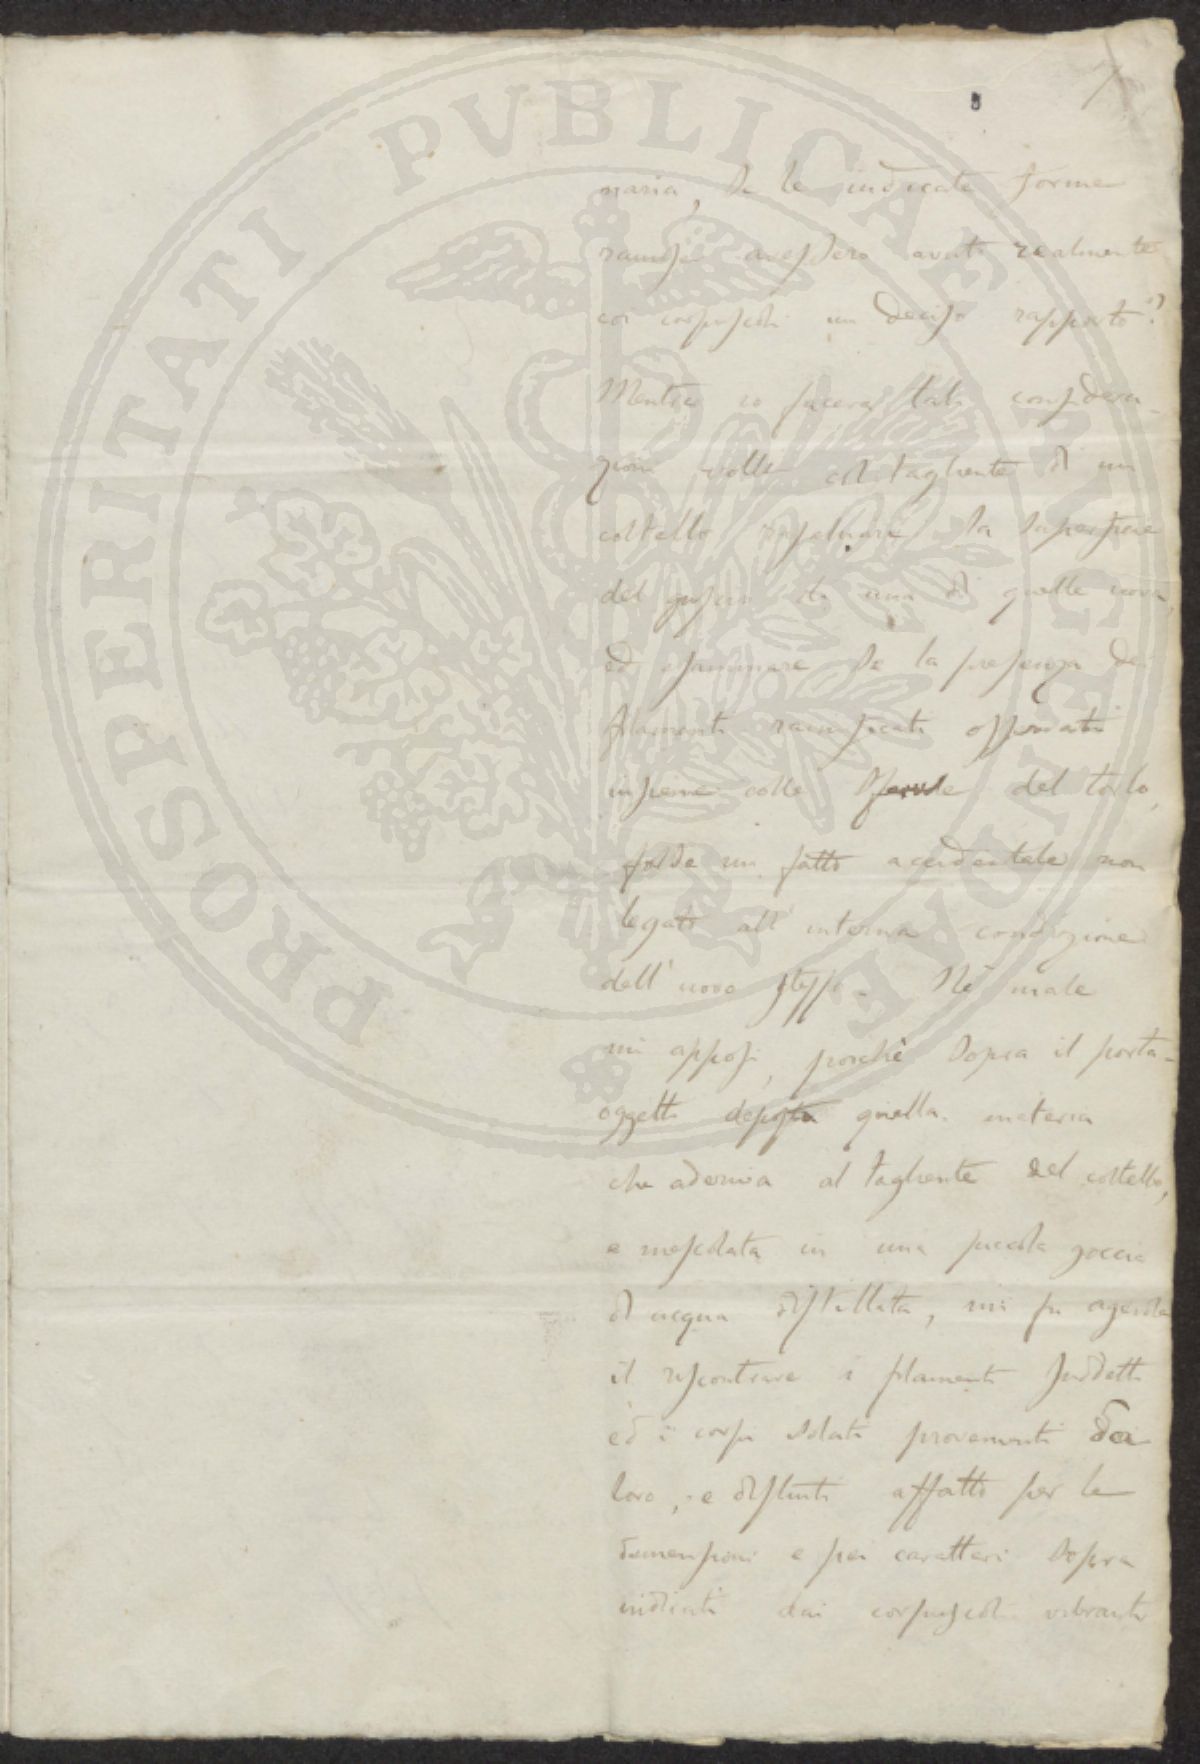 PROSPERITATI PVBLICAE AVGENDAE
7
naria, se le indicate forme
ramose avessero avuto realmente
coi corpuscoli un deciso rapporto?
Mentre io faceva tali considera-
zioni volli col tagliente di un
coltello raschiare la superficie
del guscio di una di quelle uova,
ed esaminare se la presenza dei
filamenti ramificati osservati
insieme colle sferule del torlo,
fosse un fatto accidentale non
legato all'interna condizione
dell'uovo stesso. Nè male
mi apposi, poichè sopra il porta-
oggetti deposta quella materia
che aderiva al tagliente del coltello,
e mescolata in una piccola goccia
di acqua distillata, mi fu agevole
il riscontrare i filamenti suddetti
ed i corpi ovolati provenienti da
loro, e distinti affatto per le
dimensioni e pei caratteri sopra
indicati dai corpuscoli vibranti